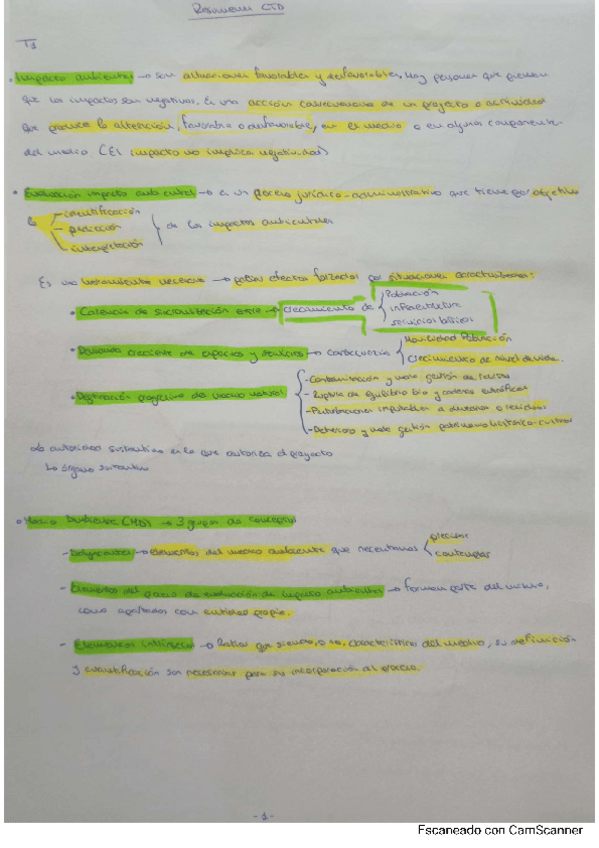 Resumen CTD
T1
• Impacto ambiental → son alteraciones favorables y desfavorables, Hay personas que piensan
que los impactos son negativos. Es una acción consecuencia de un proyecto o actividad
que produce la alteración, favorable o desfavorable, en el medio o en algún componente
del medio. (El impacto no implica negatividad)
• Evaluación impacto ambiental → es un proceso jurídico-administrativo que tiene por objetivo
la
– identificación
– predicción
– interpretación
de los impactos ambientales
Es una herramienta necesaria → para efectos forzados por situaciones caracterizadas:
• Carencia de sincronización entre → crecimiento de
Población
infraestructura
servicios básicos
• Demanda creciente de espacios y servicios → consecuencia
Movilidad Población
crecimiento de nivel de vida.
• Degradación progresiva del medio natural
- Contaminación y mala gestión de
- Ruptura de equilibrio bio y cadenas
- Perturbaciones imputables a desechos o residuos
- Deterioro y mala gestión patrimonio histórico-cultural
La autoridad sustantiva es la que autoriza el proyecto
Lo órgano sustantivo
• Medio Ambiente (MA) → 3 grupos de conceptos
- → elementos del medio ambiente que necesitamos
precisos
- Elementos del proceso de evaluación de impacto ambiental → forman parte del mismo,
como apartados con entidad propia.
- Elementos intrínsecos → Ratios que siendo, o no, característicos del medio, su definición
y cuantificación son necesarias para su incorporación al proceso.
-1-
Escaneado con CamScanner